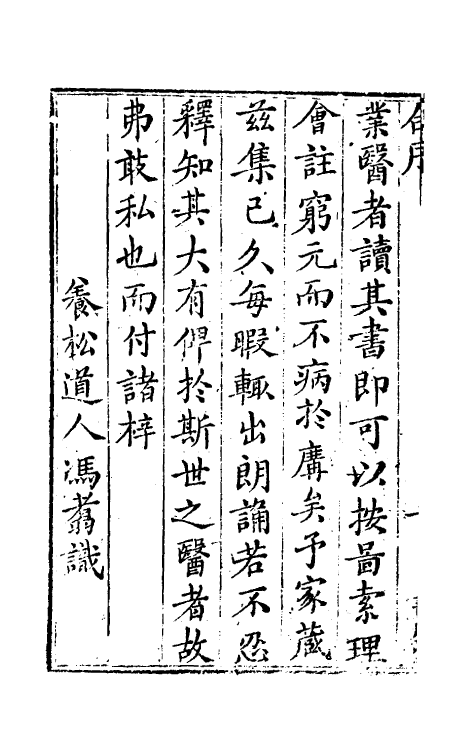 業醫者讀其書即可以按啚索理
會註窮元而不病於庽矣予家蔵
兹集已久每暇輙出朗誦若不忍
釋知其大有俾於斯世之醫者故
弗敢私也而付諸梓
養松道人馮翥識